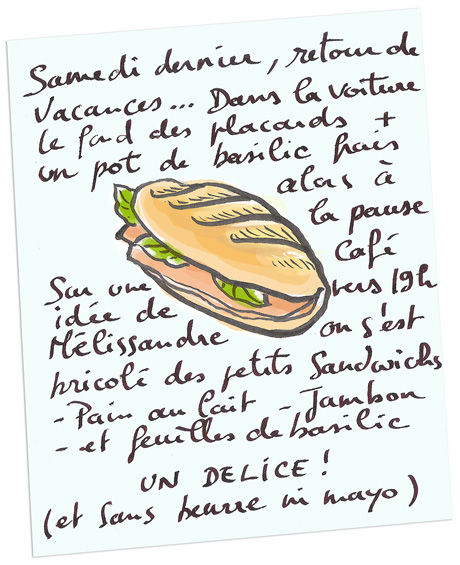 Samedi dernier, retour de
vacances... Dans la voiture
le fond des placards +
un pot de basilic frais
alors à
la pause
café
vers 19h
Sur une
idée de
Mélissandre
on s'est
bricolé des petits Sandwichs
- Pain au lait - Jambon
- et feuilles de basilic
UN DELICE !
(et sans beurre ni mayo)